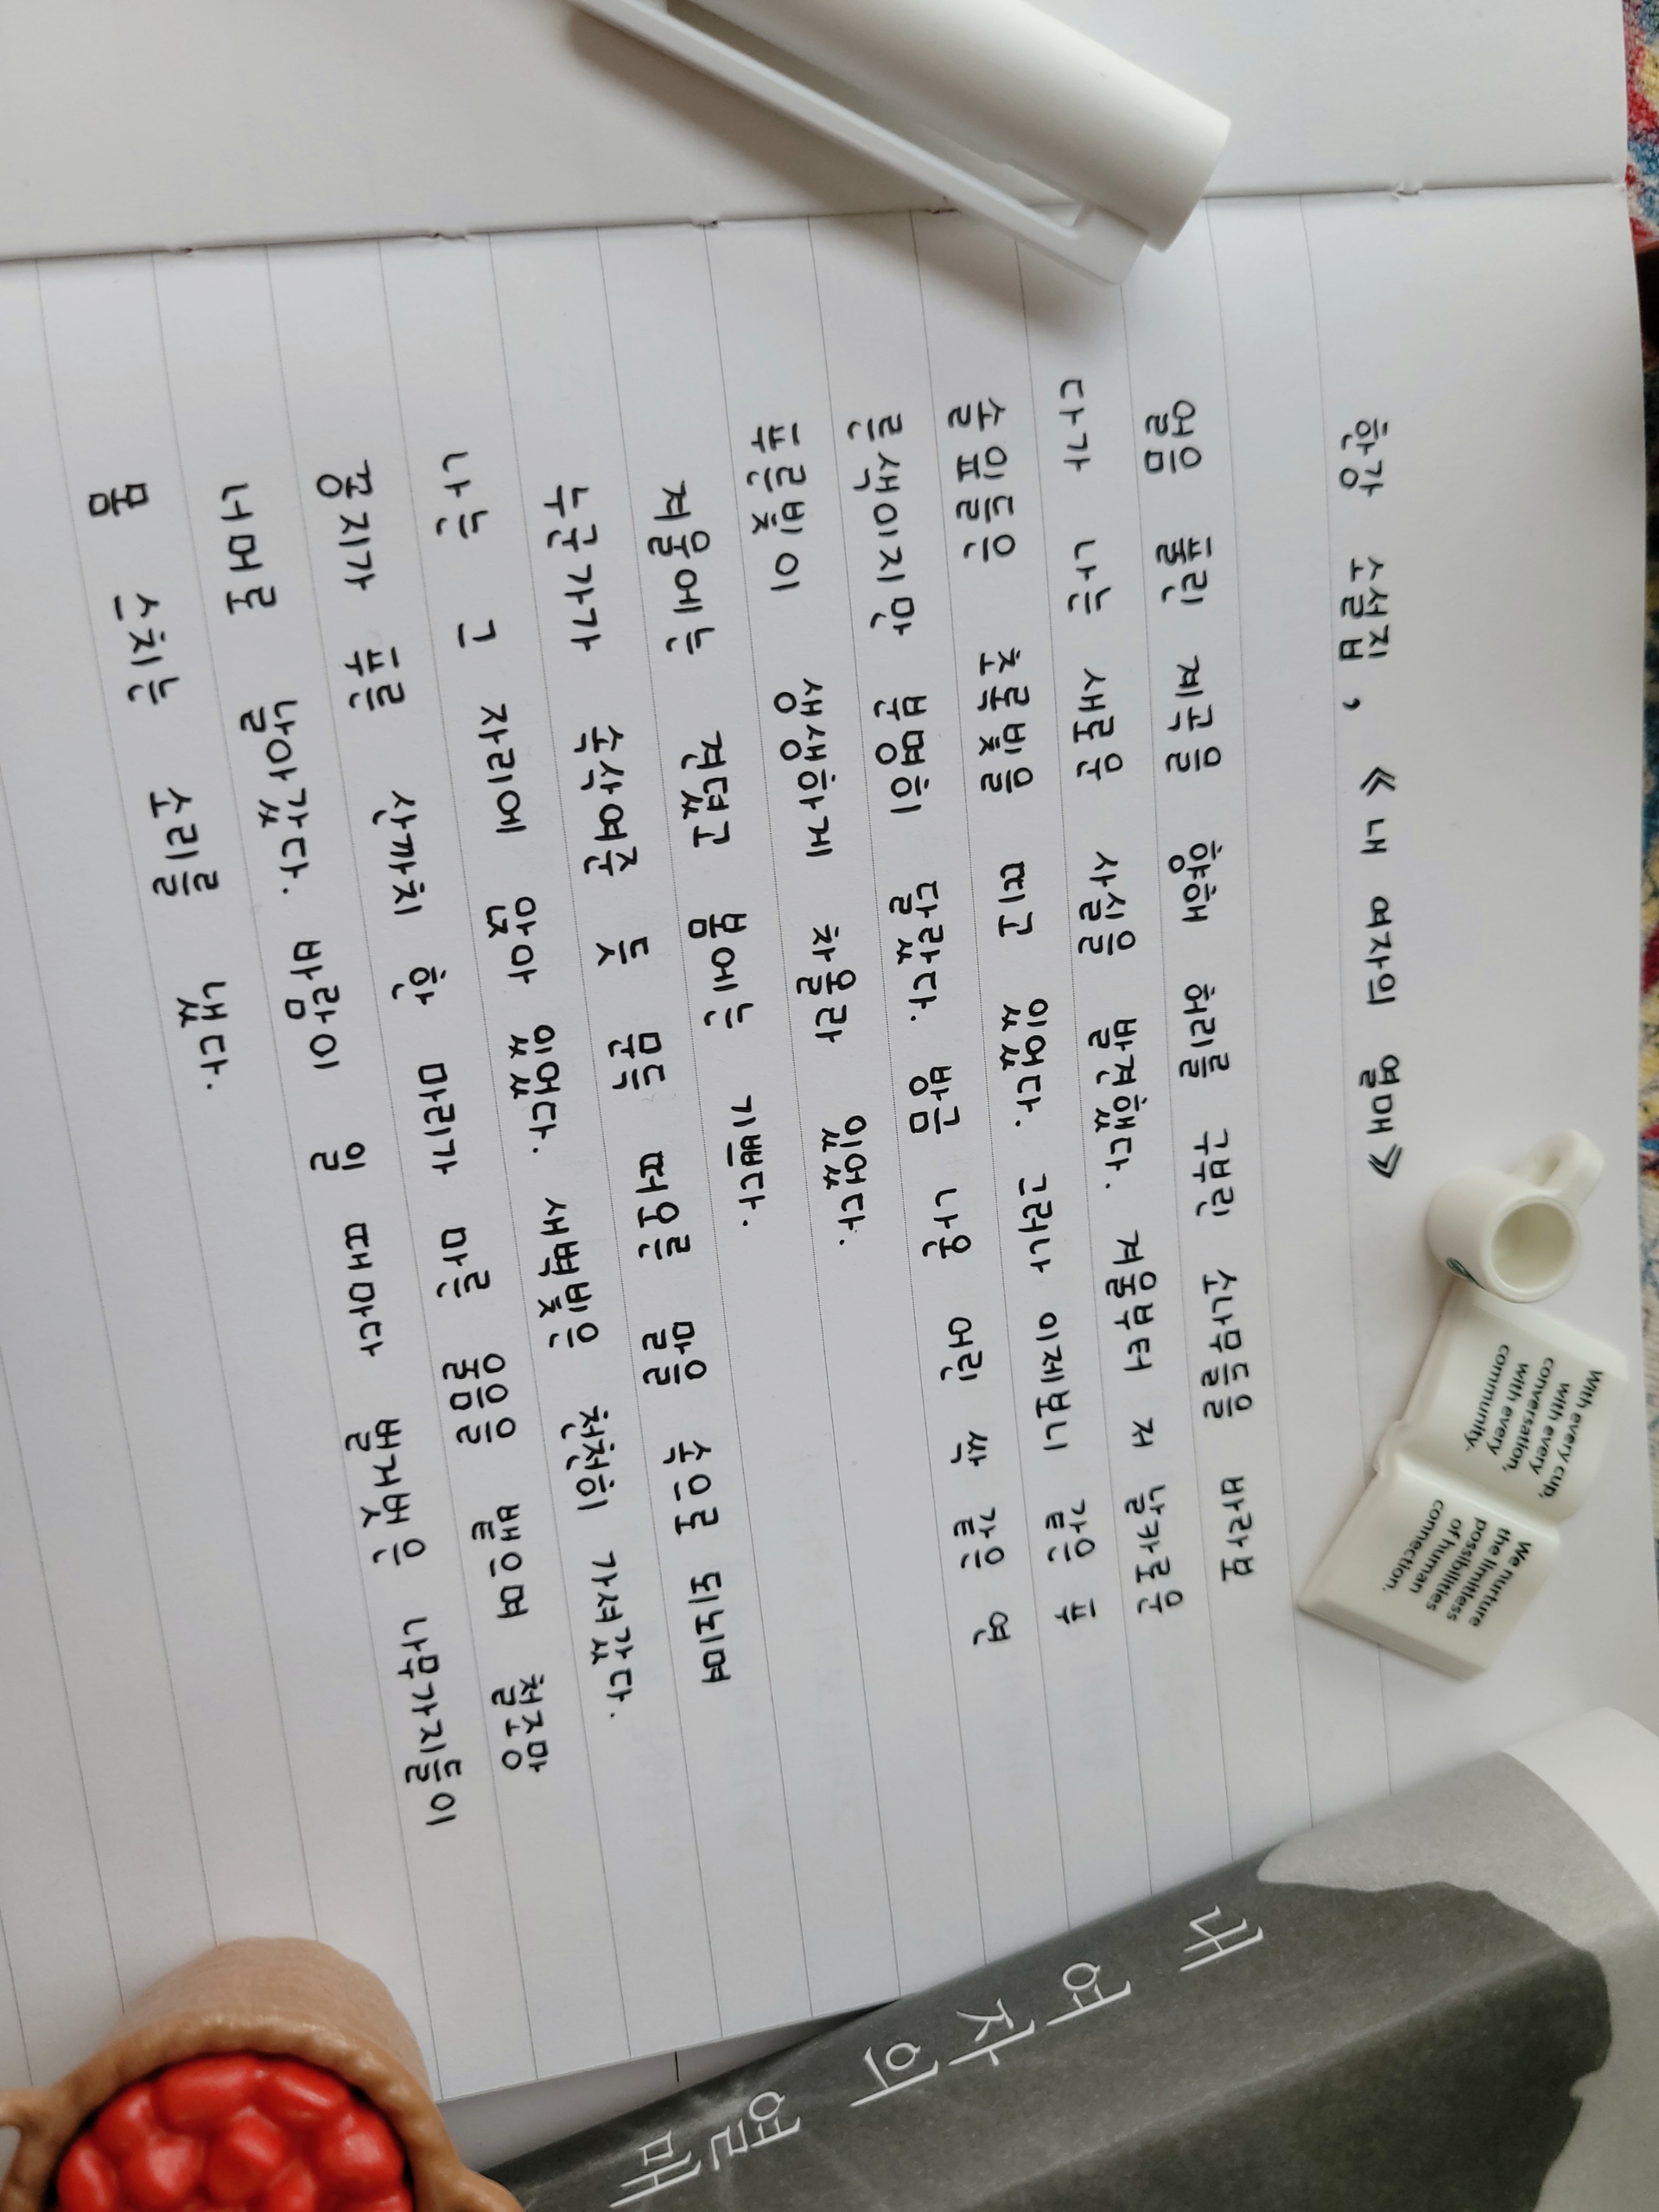 한강 소설집, 《내 여자의 열매》
얼음 풀린 계곡을 향해 허리를 구부린 소나무들을 바라보
다가 나는 새로운 사실을 발견했다. 겨울부터 저 날카로운
솔잎들은 초록빛을 띠고 있었다. 그러나 이제보니 같은 푸
른색이지만 분명히 달랐다. 방금 나온 어린 싹 같은 연
푸른빛이 생생하게 차올라 있었다.
겨울에는 견뎠고 봄에는 기쁘다.
누군가가 속삭여준 듯 문득 떠오른 말을 속으로 되뇌며
나는 그 자리에 앉아 있었다. 새벽빛은 천천히 가셔갔다.
꽁지가 푸른 산까치 한 마리가 마른 울음을 뱉으며 철조망
너머로 날아갔다. 바람이 일 때마다 벌거벗은 나무가지들이
몸 스치는 소리를 냈다.
With every cup,
with every
conversation,
with every
community.
We nurture
the limitless
possibilities
of human
connection.
내 여자의 열매